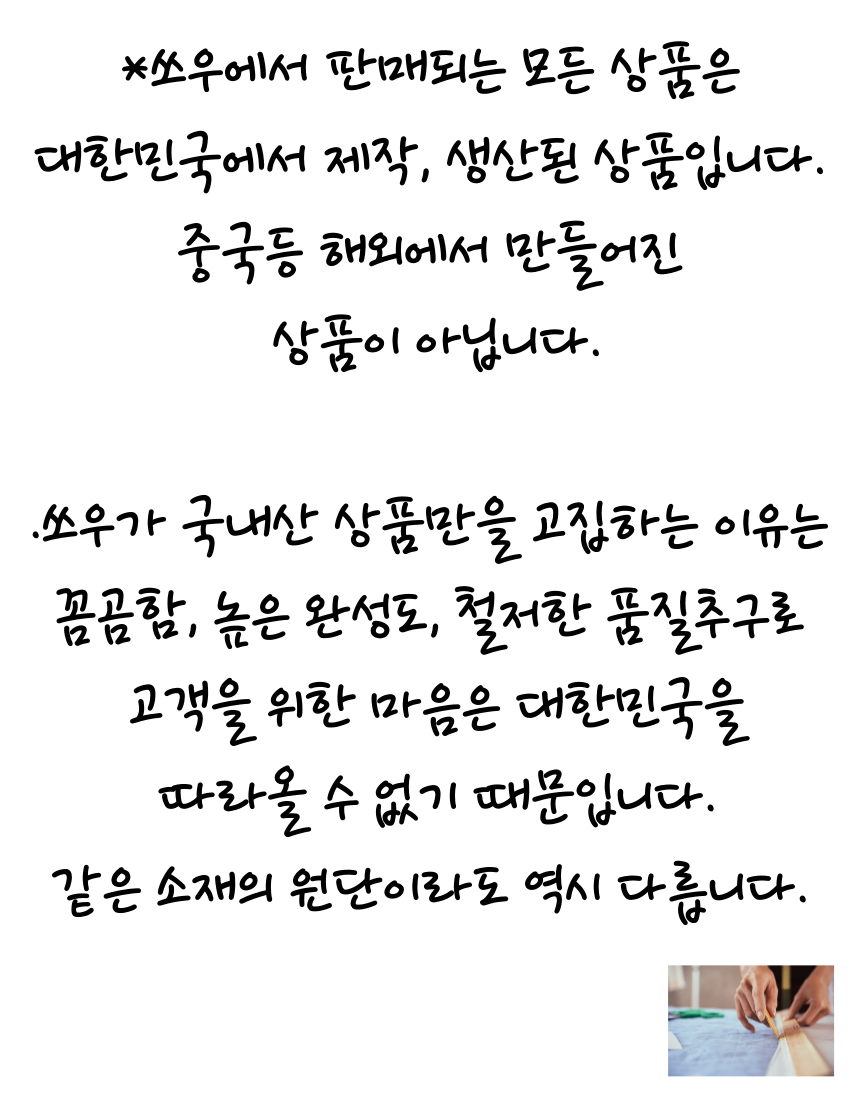 *쏘우에서 판매되는 모든 상품은
대한민국에서 제작, 생산된 상품입니다.
중국등 해외에서 만들어진
상품이 아닙니다.
.쏘우가 국내산 상품만을 고집하는 이유는
꼼꼼함, 높은 완성도, 철저한 품질추구로
고객을 위한 마음은 대한민국을
따라올 수 없기 때문입니다.
같은 소재의 원단이라도 역시 다릅니다.